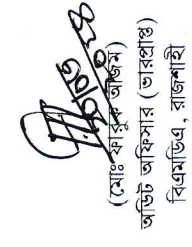 (মোঃ ফারুক আজম)
অডিট অফিসার (ভারপ্রাপ্ত)
বিএমডিএ, রাজশাহী